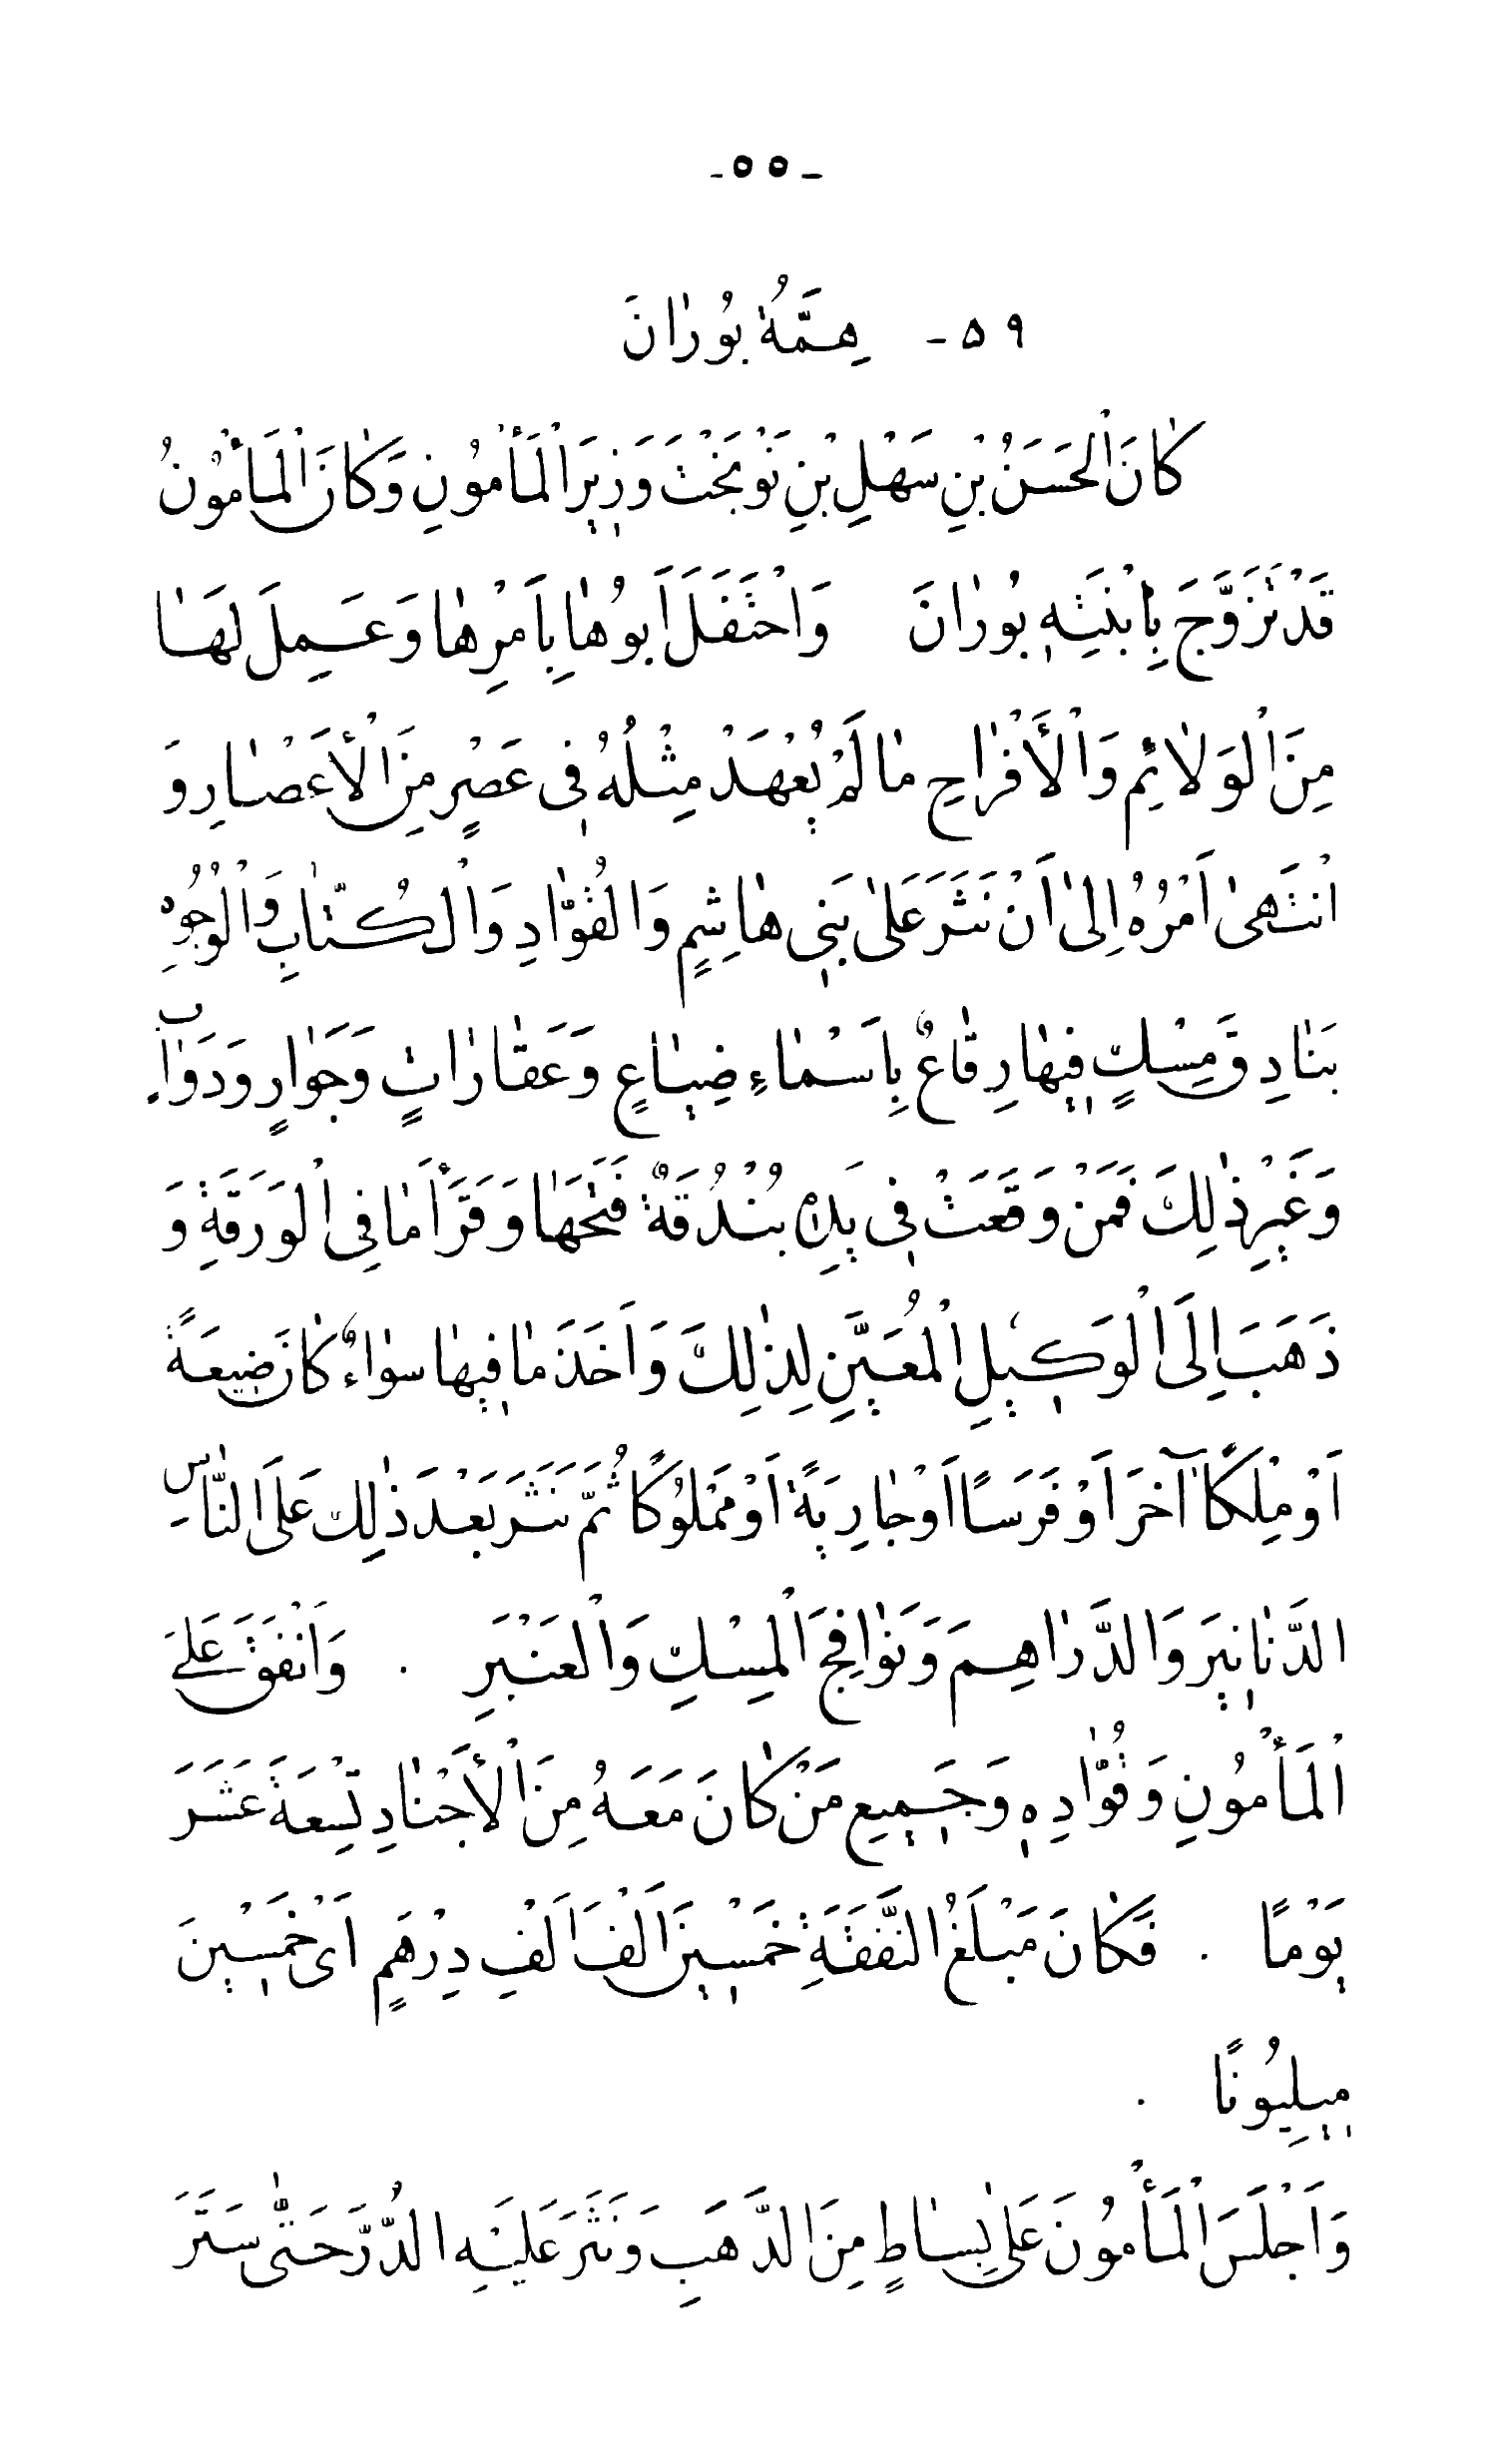 -٥٥-
٥٩- هِمَّةُ بُورٰانَ
كٰانَ الْحَسَنُ بْنِ سَهْلِ بْنِ نَوْبَخْتَ وَزِيرَ الْمَأْمُونِ وَكٰانَ الْمَأْمُونُ
قَدْ تَزَوَّجَ بِابْنَتِهِ بُورٰانَ وَاحْتَفَلَ اَبُوهٰا بِاَمْرِهٰا وَعَمِلَ لَهٰا
مِنَ الْوَلٰائِمِ وَالْأَفْرٰاحِ مٰا لَمْ يُعْهَدْ مِثْلُهُ فِى عَصْرٍ مِنَ الْأَعْصٰارِ وَ
انْتَهىٰ اَمْرُهُ اِلىٰ اَنْ نَثَرَ عَلىٰ بَنِى هٰاشِمٍ وَالْقُوّٰادِ وَالْكُتّٰابِ وَالْوُجُوهِ
بَنٰادِقَ مِسْكٍ فِيهٰا رِقٰاعٌ بِاَسْمٰاءِ ضِيٰاعٍ وَعَقٰارٰاتٍ وَجَوٰارٍ وَدَوٰابٍ
وَغَيْرِ ذٰلِكَ فَمَنْ وَقَعَتْ فِى يَدِهِ بُنْدُقَةٌ فَتَحَهٰا وَقَرَأَ مٰا فِى الْوَرَقَةِ وَ
ذَهَبَ اِلَى الْوَكِيلِ الْمُعَيَّنِ لِذٰلِكَ وَاَخَذَ مٰا فِيهٰا سوٰاءٌ كٰانَ ضِيعَةً
اَوْ مِلْكًا آخَرَ اَوْ فَرَسًا اَوْ جٰارِيَةً اَوْ مَمْلُوكًا ثُمَّ نَثَرَ بَعْدَ ذٰلِكَ عَلَى النّٰاسِ
الدَّنٰانِيرَ وَالدَّرٰاهِمَ وَنَوٰافِجَ الْمِسْكِ وَالْعَنْبَرِ . وَاَنْفَقَ عَلىَ
الْمَأْمُونِ وَقُوّٰادِهِ وَجَمِيعِ مَنْ كٰانَ مَعَهُ مِنَ الْأَجْنٰادِ تِسْعَةَ عَشَرَ
يَوْمًا . فَكٰانَ مَبْلَغُ النَّفَقَةِ خَمْسِينَ اَلْفَ اَلْفِ دِرْهَمٍ اَىْ خَمْسِينَ
مِيلِيُونًا .
وَاَجْلَسَ الْمَأْمُونَ عَلىٰ بِسٰاطٍ مِنَ الذَّهَبِ وَنَثَرَ عَلَيْهِ الدُّرَّ حَتّٰى سَتَرَ